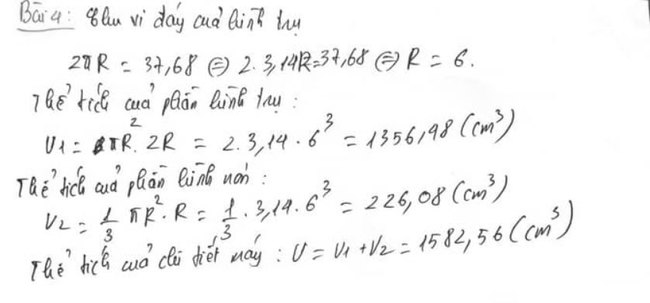 Bài 4: Chu vi đáy của hình trụ
2πR = 37,68 ⇔ 2.3,14R=37,68 ⇔ R = 6.
Thể tích của phần hình trụ:
V1 = πR². 2R = 2.3,14.6³ = 1356,98 (cm³)
Thể tích của phần hình nón:
V2 = 1/3 πR².R = 1/3 .3,14.6³ = 226,08 (cm³)
Thể tích của chi tiết máy: V = V1 + V2 = 1582,56 (cm³)